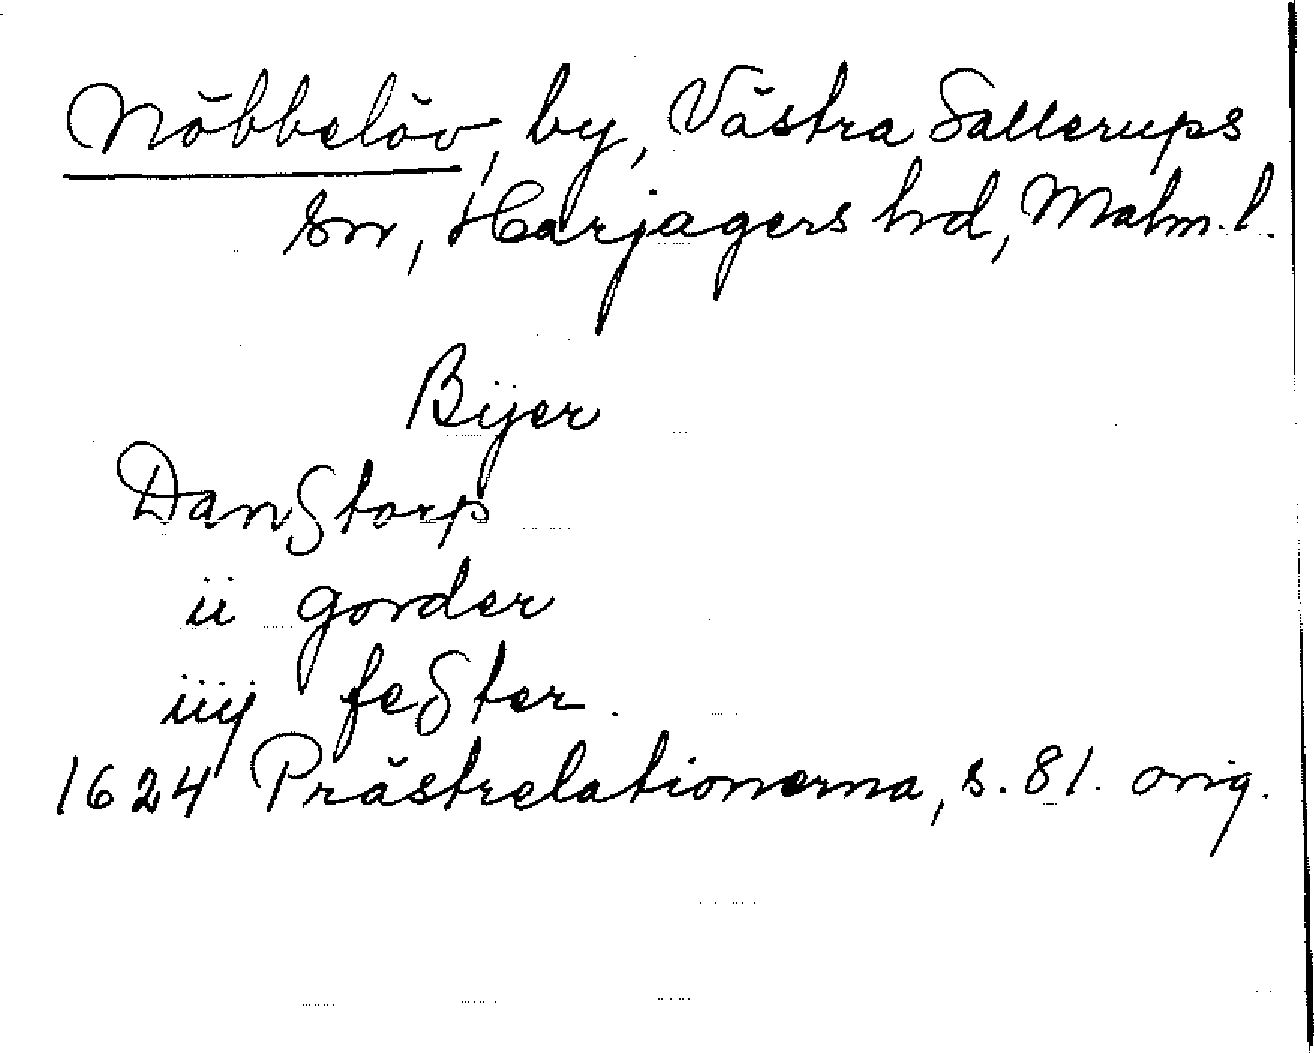 Nöbbelöv, by, Västra Sallerups
sn, Harjagers hd, Malm. l.
Bÿer
Danstorp
ii gorder
iiij fester.
1624 Prästrelationerna, s. 81. orig.